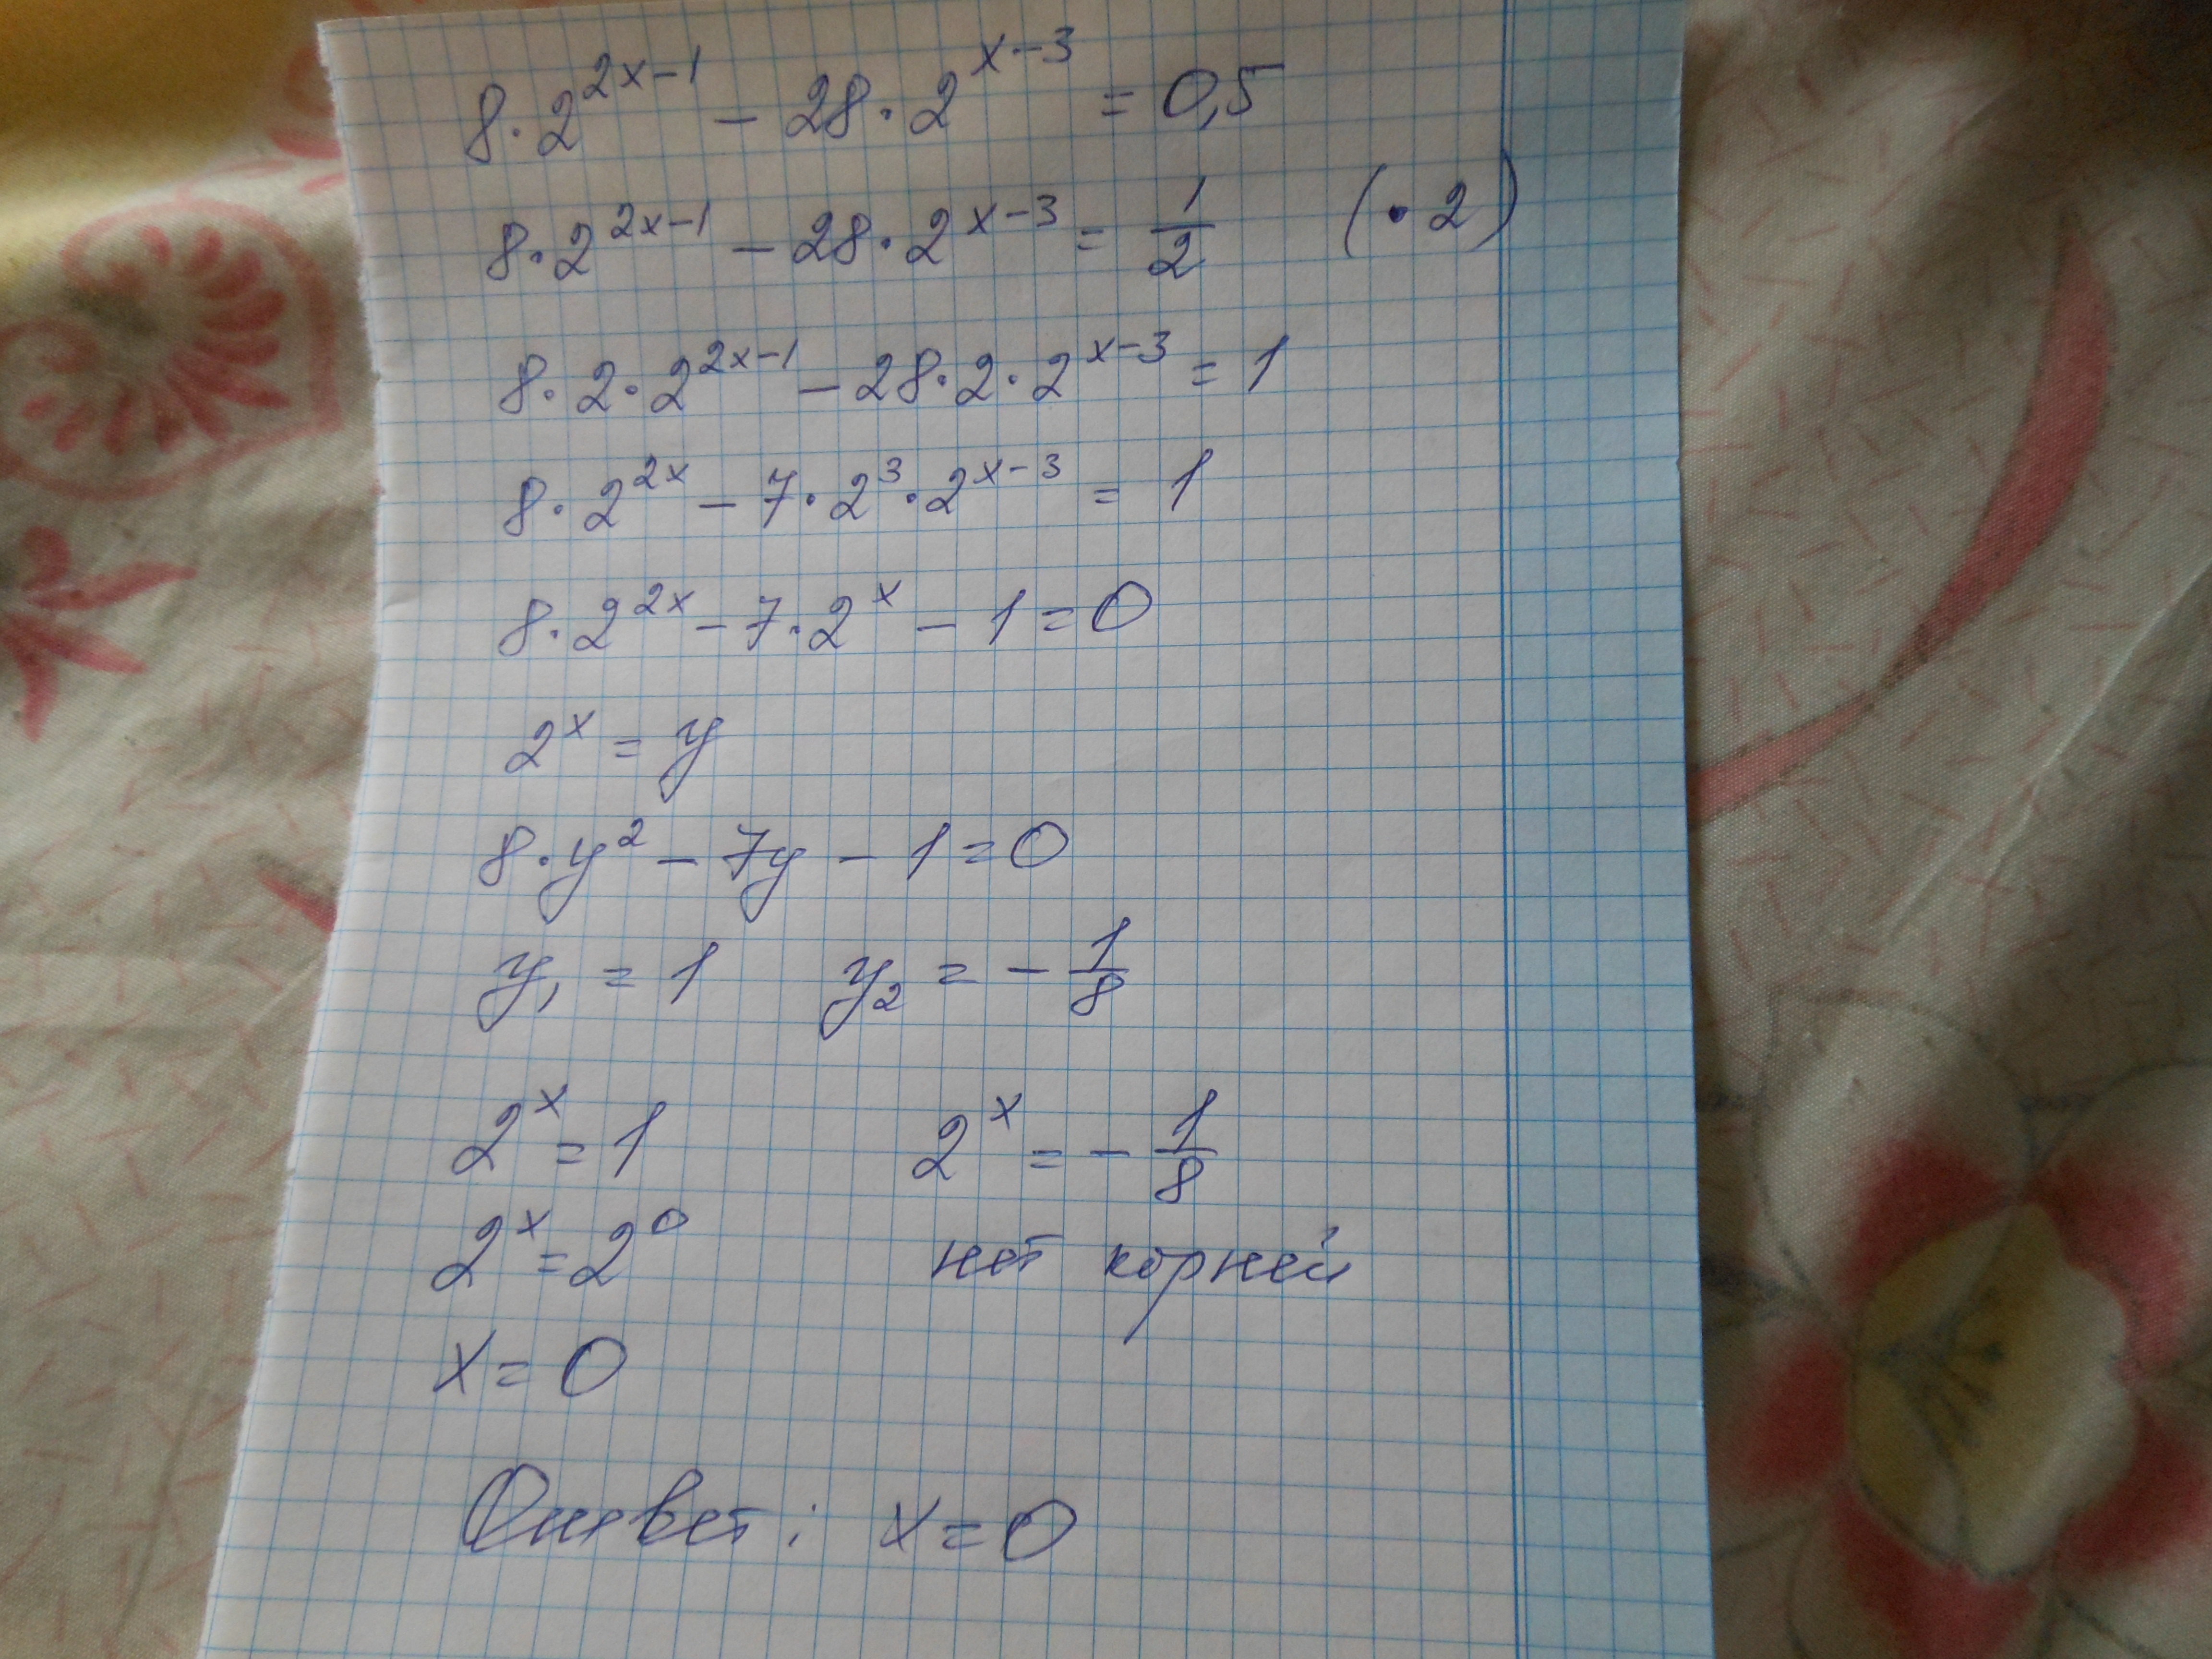 8·2^{2x-1} - 28·2^{x-3} = 0,5
8·2^{2x-1} - 28·2^{x-3} = 1/2 (·2)
8·2·2^{2x-1} - 28·2·2^{x-3} = 1
8·2^{2x} - 7·2^3·2^{x-3} = 1
8·2^{2x} - 7·2^x - 1 = 0
2^x = y
8·y^2 - 7y - 1 = 0
y_1 = 1 y_2 = -1/8
2^x = 1 2^x = -1/8
2^x = 2^0 нет корней
x = 0
Ответ: x = 0